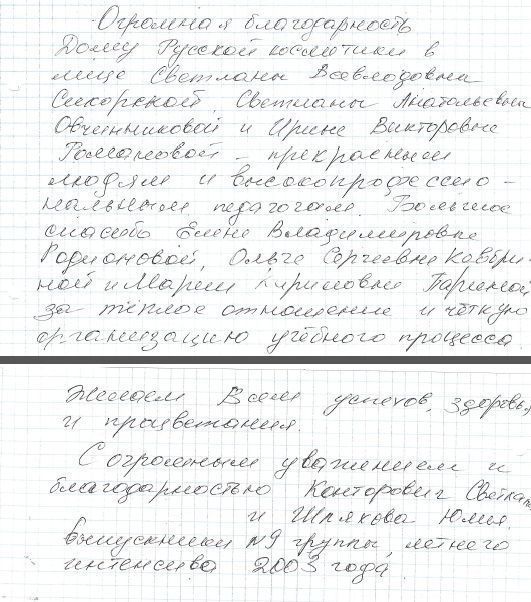 Огромная благодарность
Дому Русской косметики в
лице Светланы Всеволодовны
Сикорской, Светланы Анатольевны
Овчинниковой и Ирине Викторовне
Романовой – прекрасным
людям и высокопрофессио-
нальным педагогам. Большое
спасибо Елене Владимировне
Родионовой, Ольге Сергеевне
ной и Марии Кирилловне
за тёплое отношение и чёткую
организацию учебного процесса.
Желаем Всем успехов, здоровья
и процветания.
С огромным уважением и
благодарностью Конторович Светлана
и Шпякова Юлия,
выпускники №9 группы, летнего
интенсива 2003 года